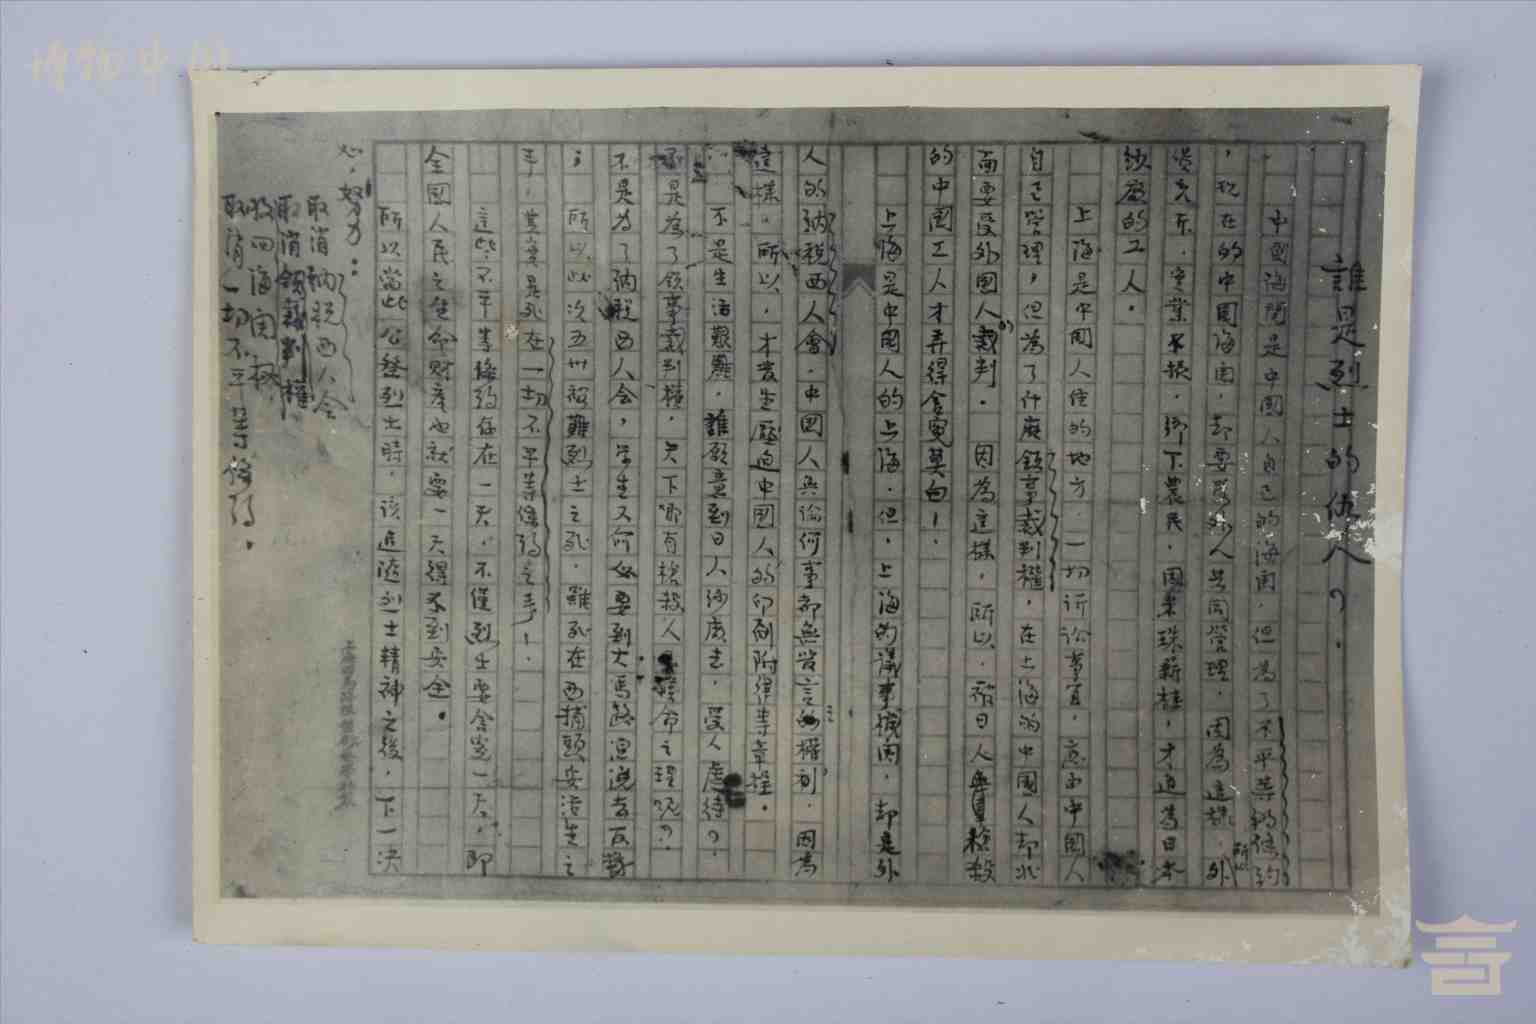 誰是烈士的仇人？
中國海關是中國人自己的海關，但為了不平等的條約
，現在的中國海關，却要受外人共同管理，因為這樣，所以外
貨充斥，實業不振，鄉下農民，因米珠薪桂，才追為日本
紗廠的工人。
上海是中國人住的地方，一切訴訟事宜，應由中國人
自己管理，但為了什麼領事裁判權，在上海的中國人却非
而要受外國人的裁判。 因為這樣，所以，被日人槍殺
的中國工人才弄得含冤莫白！
上海是中國人的上海，但，上海的議事機関，却是外
人的納稅西人會，中國人無論何事都無發言之權利，因為
這樣，所以，才發生壓迫中國人的印刷附律等章程。
不是生活艱難，誰願意到日人紗廠去，受人虐待？
不是為了領事裁判權，天下那有槍殺人命之理呢？
不是為了納稅西人会，学生又何必要到大馬路演說去反對
；所以此次五卅殺難烈士之死，雖死在西捕頭安活生之
手，其實是死在一切不平等條約之手！
這些不平等條約任在一天，不僅烈士要含冤一天，即
全國人民之生命財產也就要一天得不到安全。
所以當此公祭烈士時，該追隨烈士精神之後，下一決
心，努力：
取消納稅西人会
取消領事裁判權
收回海関權
取消一切不平等條約。
博物中国